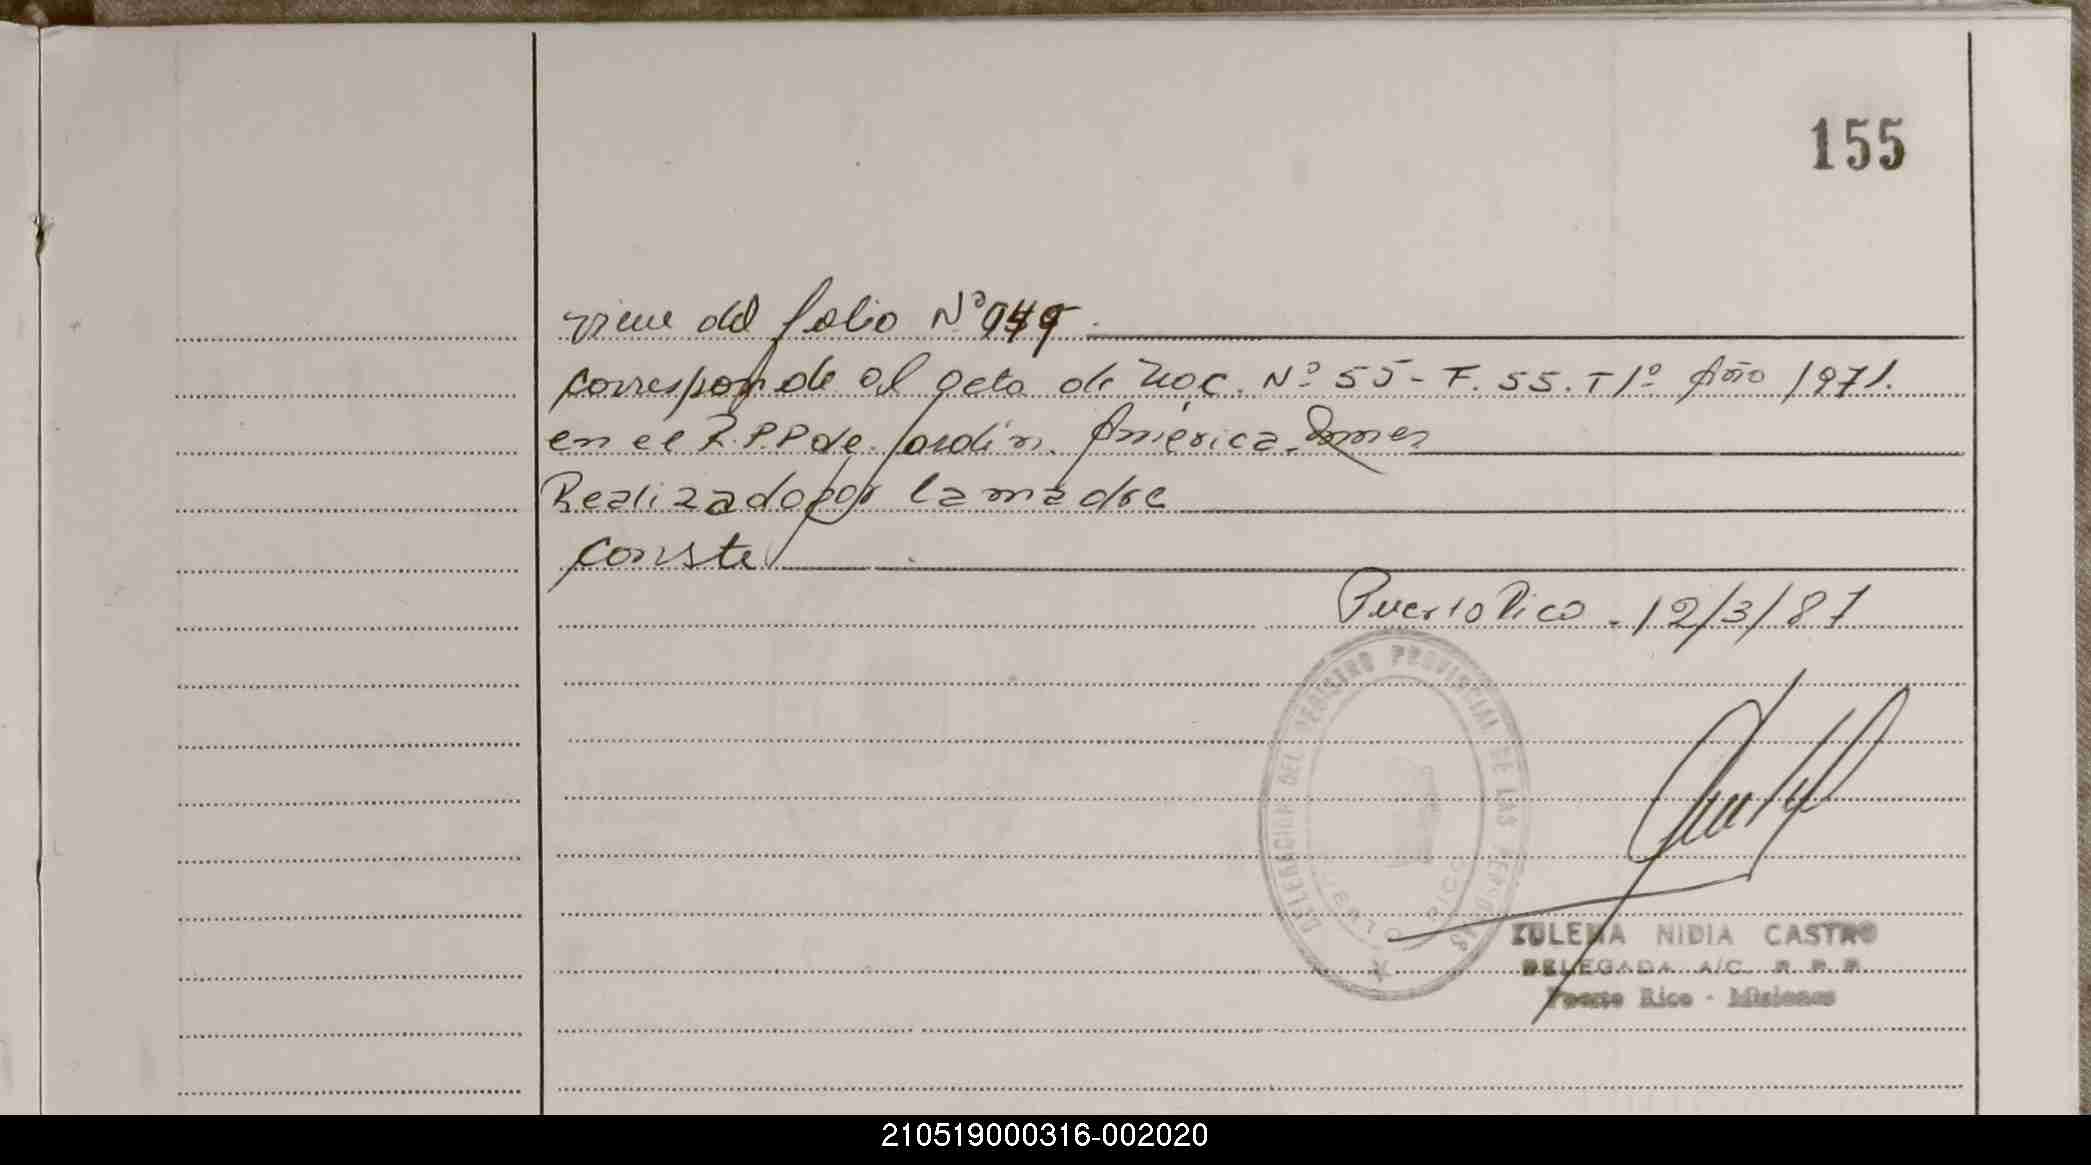 155
viene del folio Nº
corresponde al acta de Nac. Nº 55 - F. 55. T 1º Año 1971.
en el R.P.P de Jardín América.
Realizado por la madre
conste
Puerto Rico - 12/3/87
DELEGACION DEL REGISTRO PROVINCIAL DE LAS PERSONAS
PUERTO RICO
ZULEMA NIDIA CASTRO
DELEGADA A/C R. P. P.
Puerto Rico - Misiones
210519000316-002020